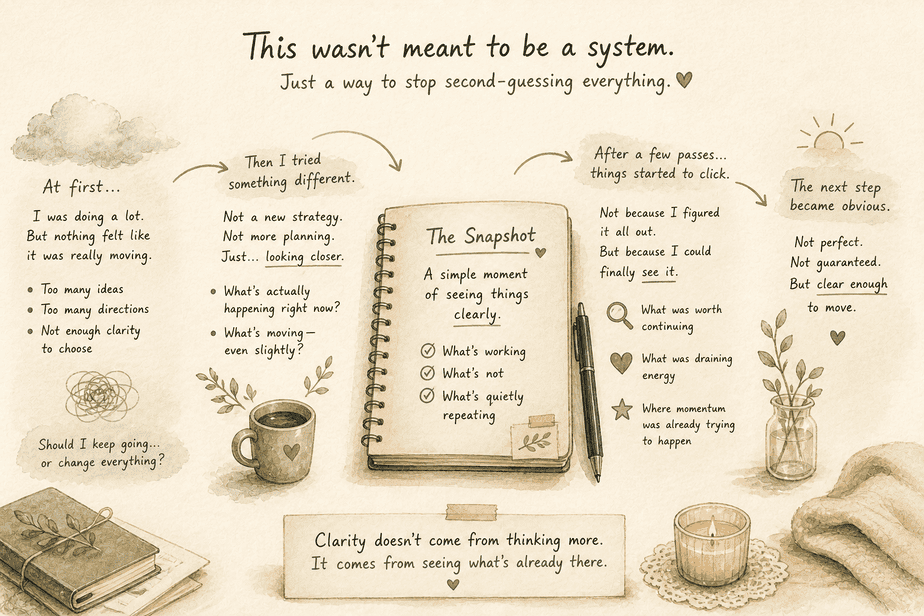 This wasn't meant to be a system.
Just a way to stop second-guessing everything.
At first...
I was doing a lot.
But nothing felt like
it was really moving.
• Too many ideas
• Too many directions
• Not enough clarity
to choose
Should I keep going...
or change everything?
Then I tried
something different.
Not a new strategy.
Not more planning.
Just... looking closer.
• What's actually
happening right now?
• What's moving—
even slightly?
The Snapshot
A simple moment
of seeing things
clearly.
What's working
What's not
What's quietly
repeating
After a few passes...
things started to click.
Not because I figured
it all out.
But because I could
finally see it.
What was worth
continuing
What was draining
energy
Where momentum
was already trying
to happen
The next step
became obvious.
Not perfect.
Not guaranteed.
But clear enough
to move.
Clarity doesn't come from thinking more.
It comes from seeing what's already there.